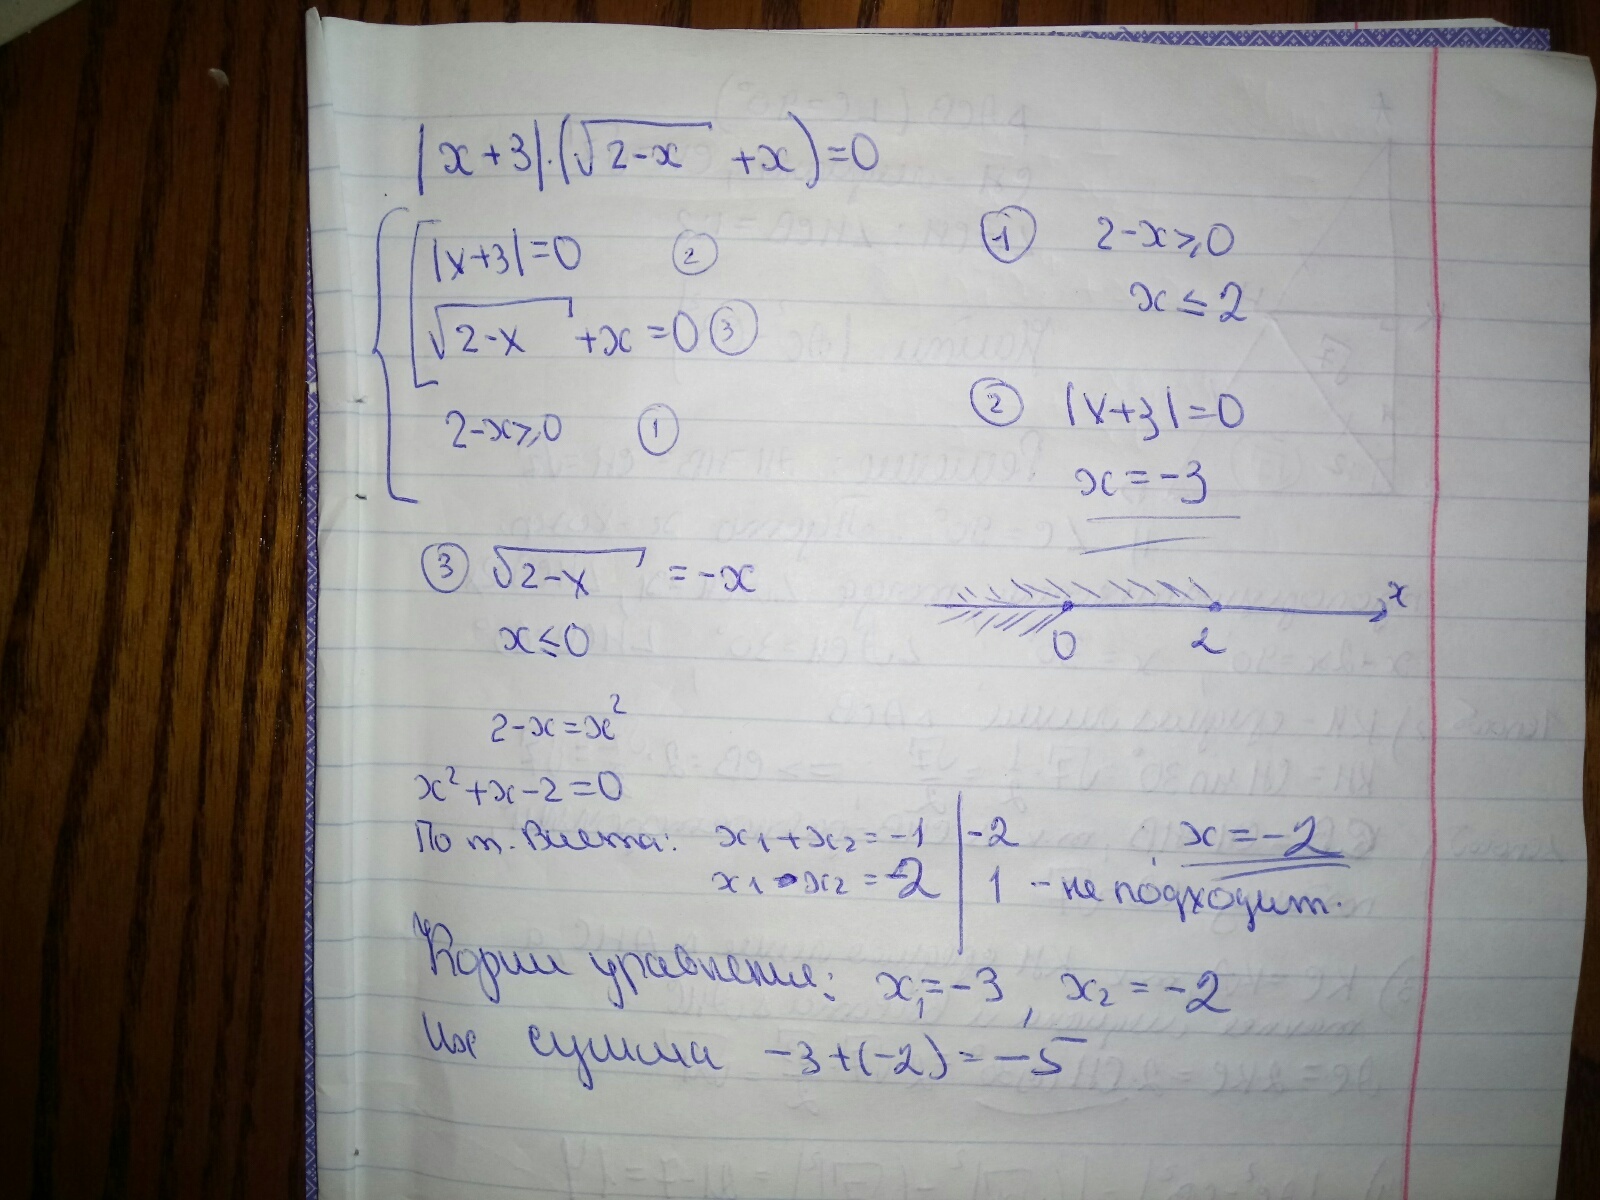 |x+3|·(√2-x +x)=0
|x+3|=0 ②
√2-x +x=0 ③
2-x≥0 ①
① 2-x≥0
x≤2
② |x+3|=0
x=-3
③ √2-x = -x
x≤0
0 2 x
2-x=x²
x²+x-2=0
По т. Виета: x₁+x₂=-1 | -2 x=-2
x₁·x₂=-2 | 1 - не подходит.
Корни уравнения: x₁=-3, x₂=-2
Их сумма -3+(-2)=-5